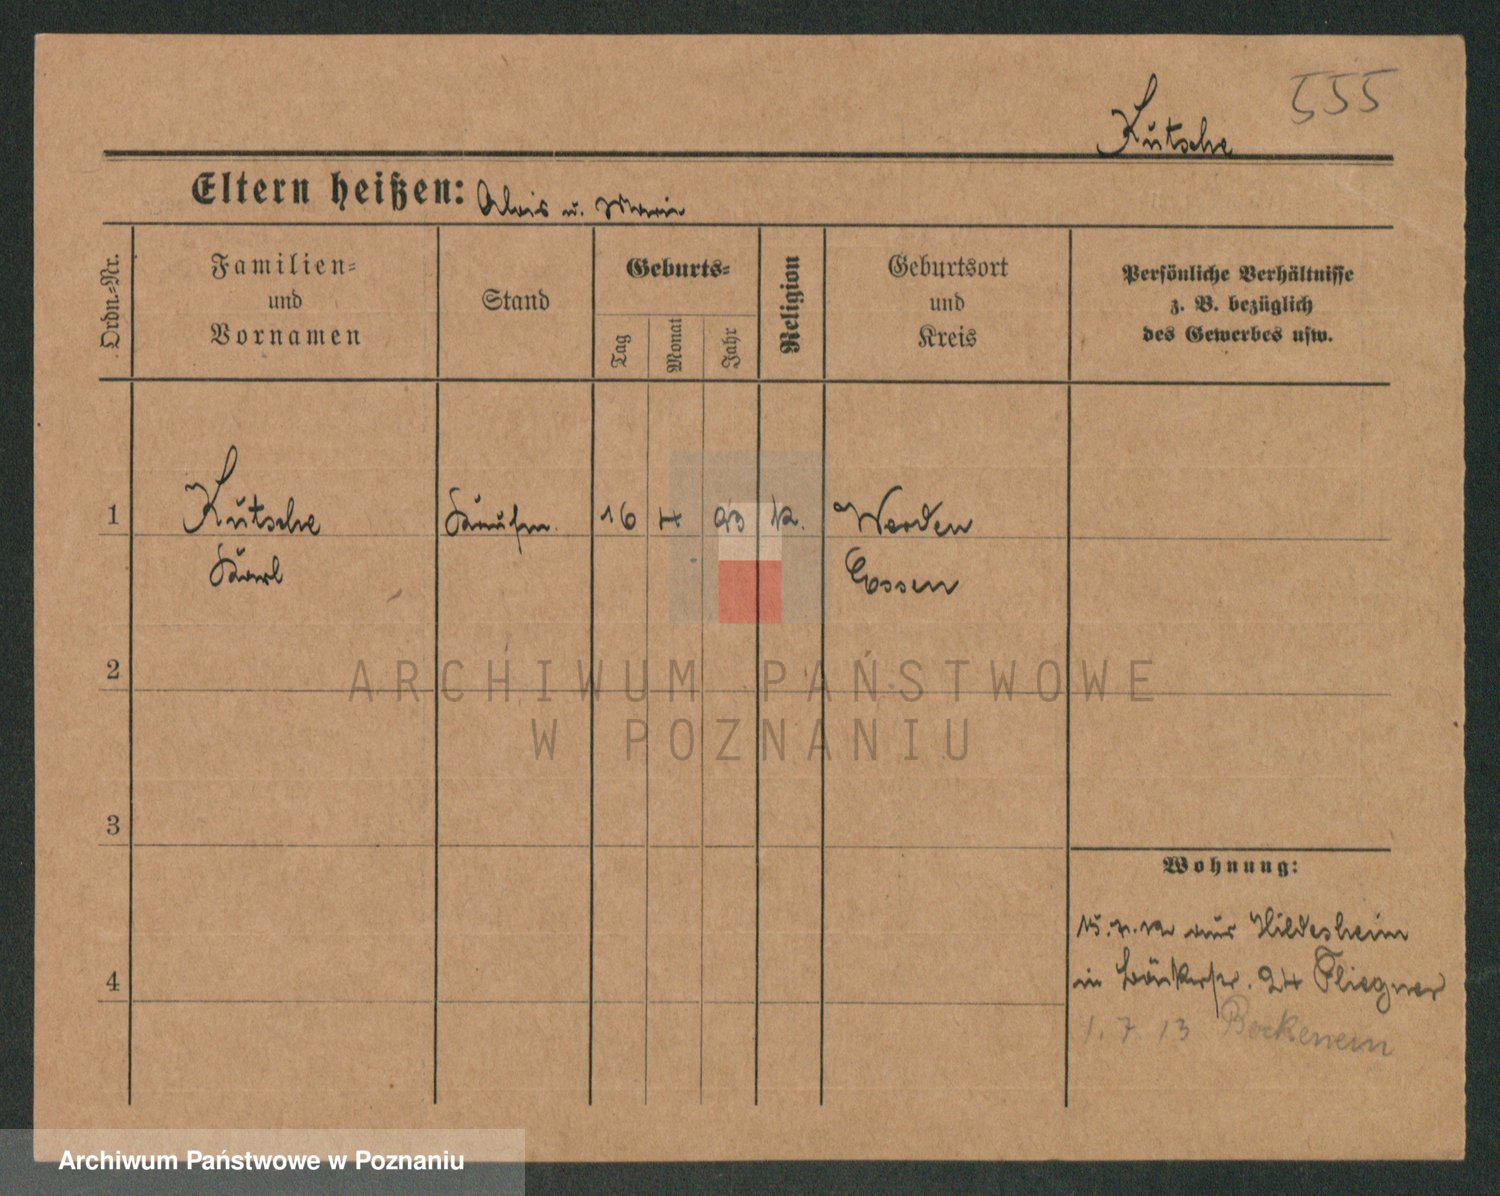 555
Kutsche
Eltern heißen: Alois u. Marie
Ordn.-Nr.
Familien-
und
Vornamen
Stand
Geburts-
Tag
Monat
Jahr
Religion
Geburtsort
und
Kreis
Persönliche Verhältnisse
z. B. bezüglich
des Gewerbes usw.
1 Kutsche Kaufm. 16 4 93 k. Werden
Karl Essen
2
3
4
Wohnung:
aus Hildesheim
in 24 Fliegner
1. 7. 13 Bockenem
ARCHIWUM PAŃSTWOWE
W POZNANIU
Archiwum Państwowe w Poznaniu